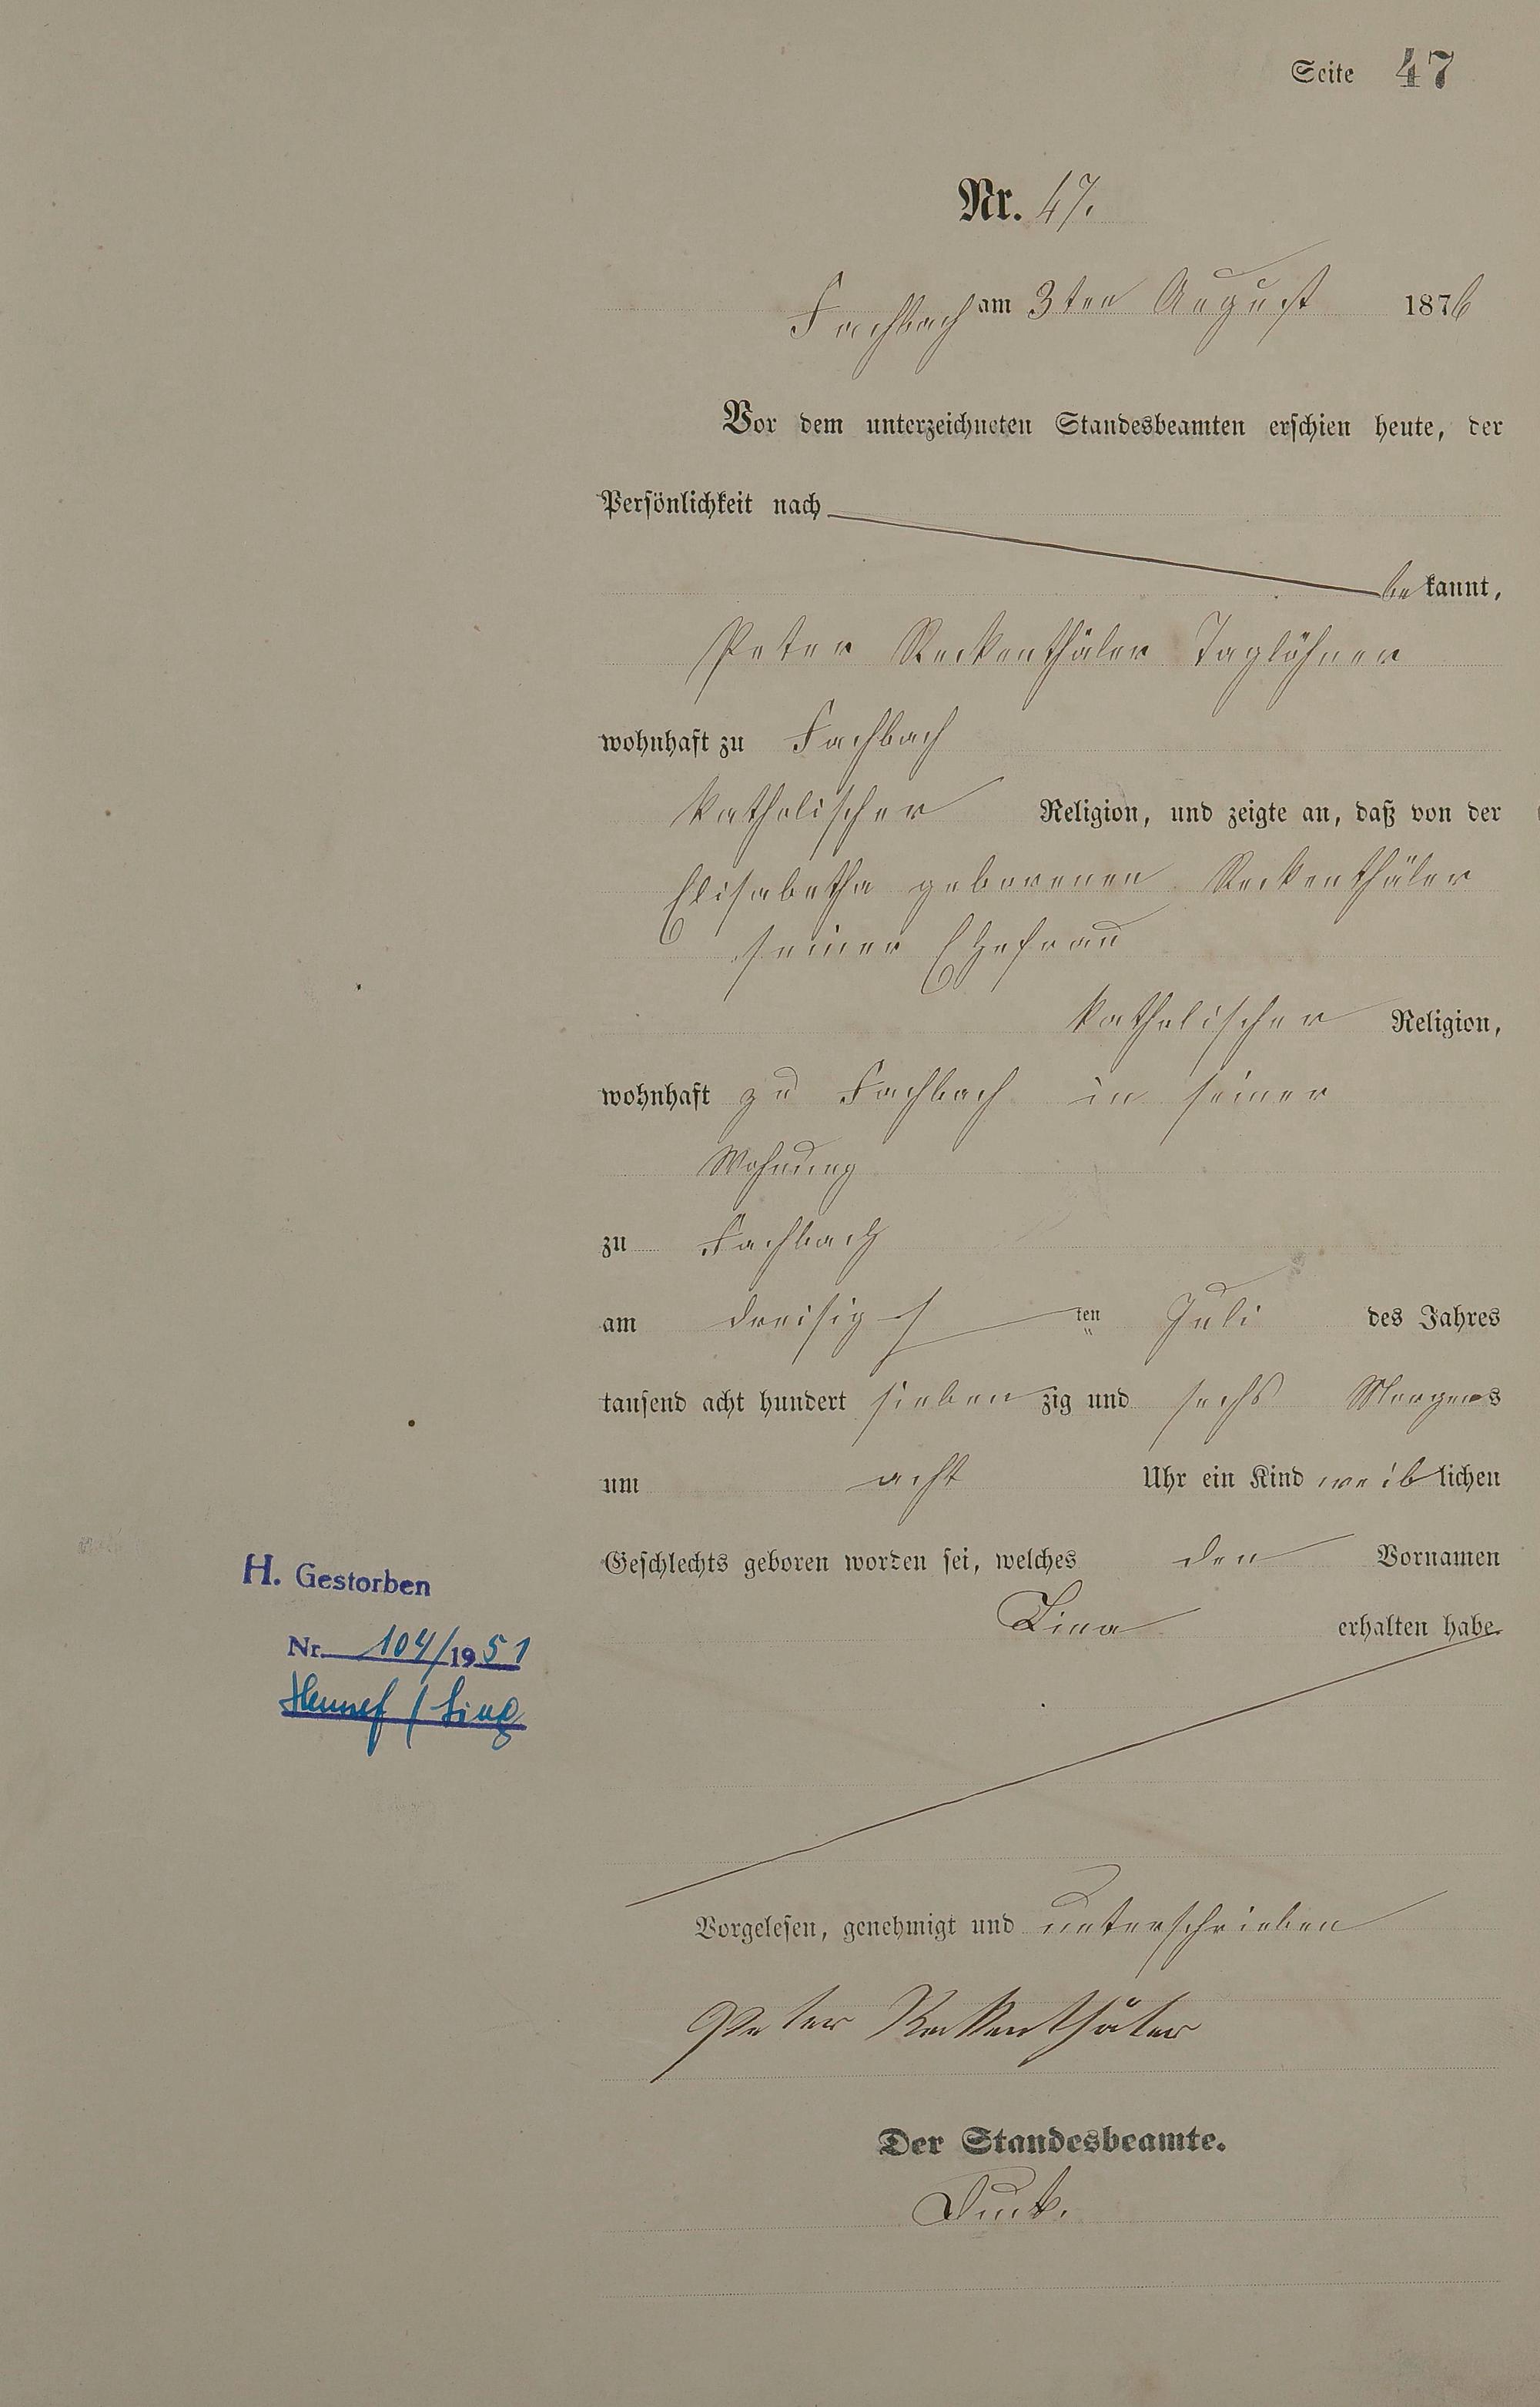 Seite 47
Nr. 47.
Fachbach am 3ten August 1876
Vor dem unterzeichneten Standesbeamten erschien heute, der
Persönlichkeit nach
bekannt,
Peter Reckenthäler Taglöhner
wohnhaft zu Fachbach
katholischer Religion, und zeigte an, daß von der
Elisabetha geborenen Reckenthäler
seiner Ehefrau
katholischer Religion,
wohnhaft zu Fachbach in seiner
Wohnung
zu Fachbach
am dreisigsten Juli des Jahres
tausend acht hundert siebenzig und sechs Morgens
um acht Uhr ein Kind weiblichen
Geschlechts geboren worden sei, welches den Vornamen
Lina erhalten habe.
H. Gestorben
Nr. 104/1951
Hennef / Sieg
Vorgelesen, genehmigt und unterschrieben
Peter Reckenthäler
Der Standesbeamte.